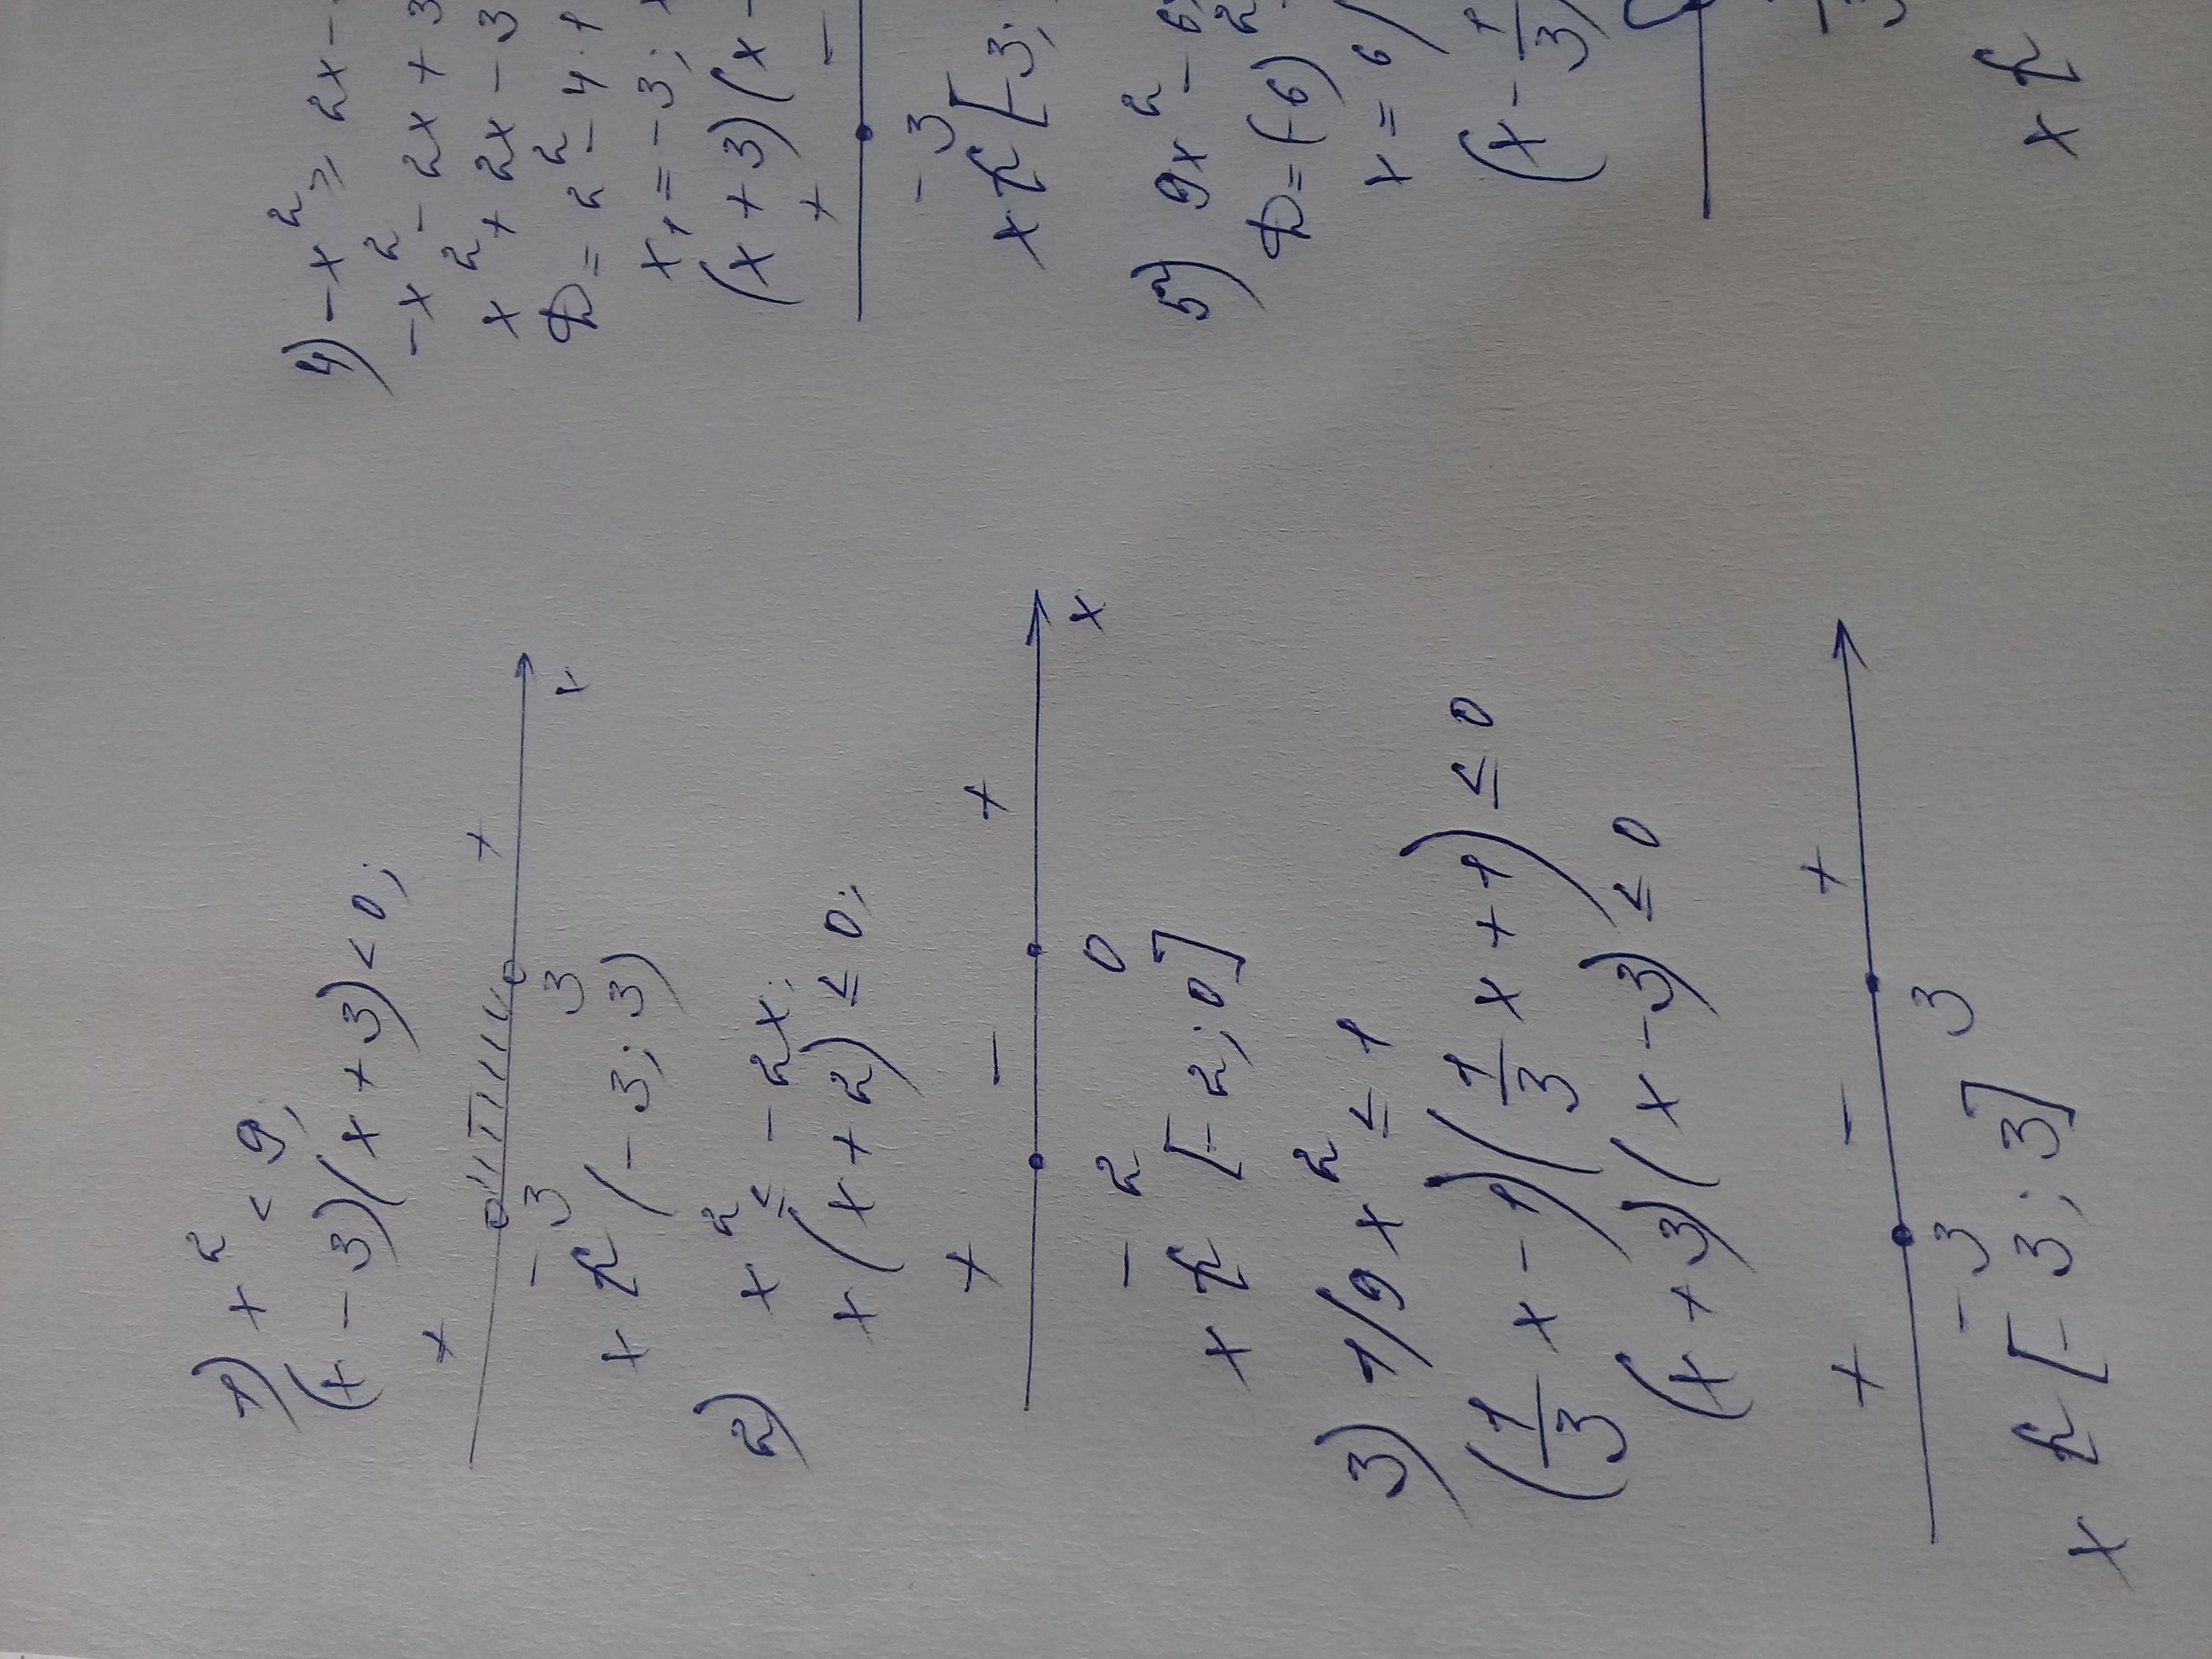 1) x² < 9;
(x - 3)(x + 3) < 0;
+ +
-3 3 x
x ∈ (-3; 3)
2) x² ≤ -2x;
x(x + 2) ≤ 0;
+ - +
-2 0 x
x ∈ [-2; 0]
3) 1/9 x² ≤ 1
(1/3 x - 1)(1/3 x + 1) ≤ 0
(x + 3)(x - 3) ≤ 0
+ - +
-3 3
x ∈ [-3; 3]
4) -x² ≥ 2x -
-x² - 2x + 3
x² + 2x - 3
D = 2² - 4·1
x₁ = -3;
(x + 3)(x -
+ -
-3
x ∈ [-3;
5) 9x² - 6
D = (-6)²
x = 6/
(x - 1/3)
x ∈